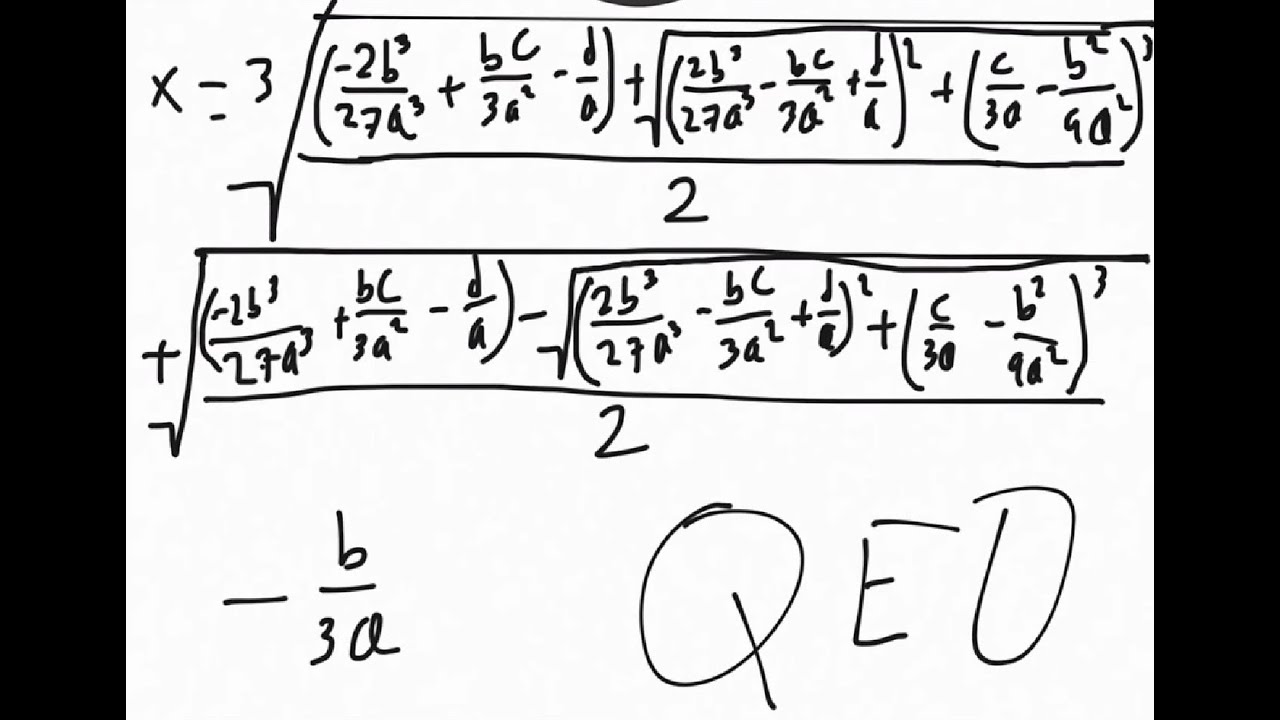 x = 3√(((-2b³/27a³ + bc/3a² - d/a) + √((2b³/27a³ - bc/3a² + d/a)² + (c/3a - b²/9a²)³))/2)
+ √(((-2b³/27a³ + bc/3a² - d/a) - √((2b³/27a³ - bc/3a² + d/a)² + (c/3a - b²/9a²)³))/2)
- b/3a QED